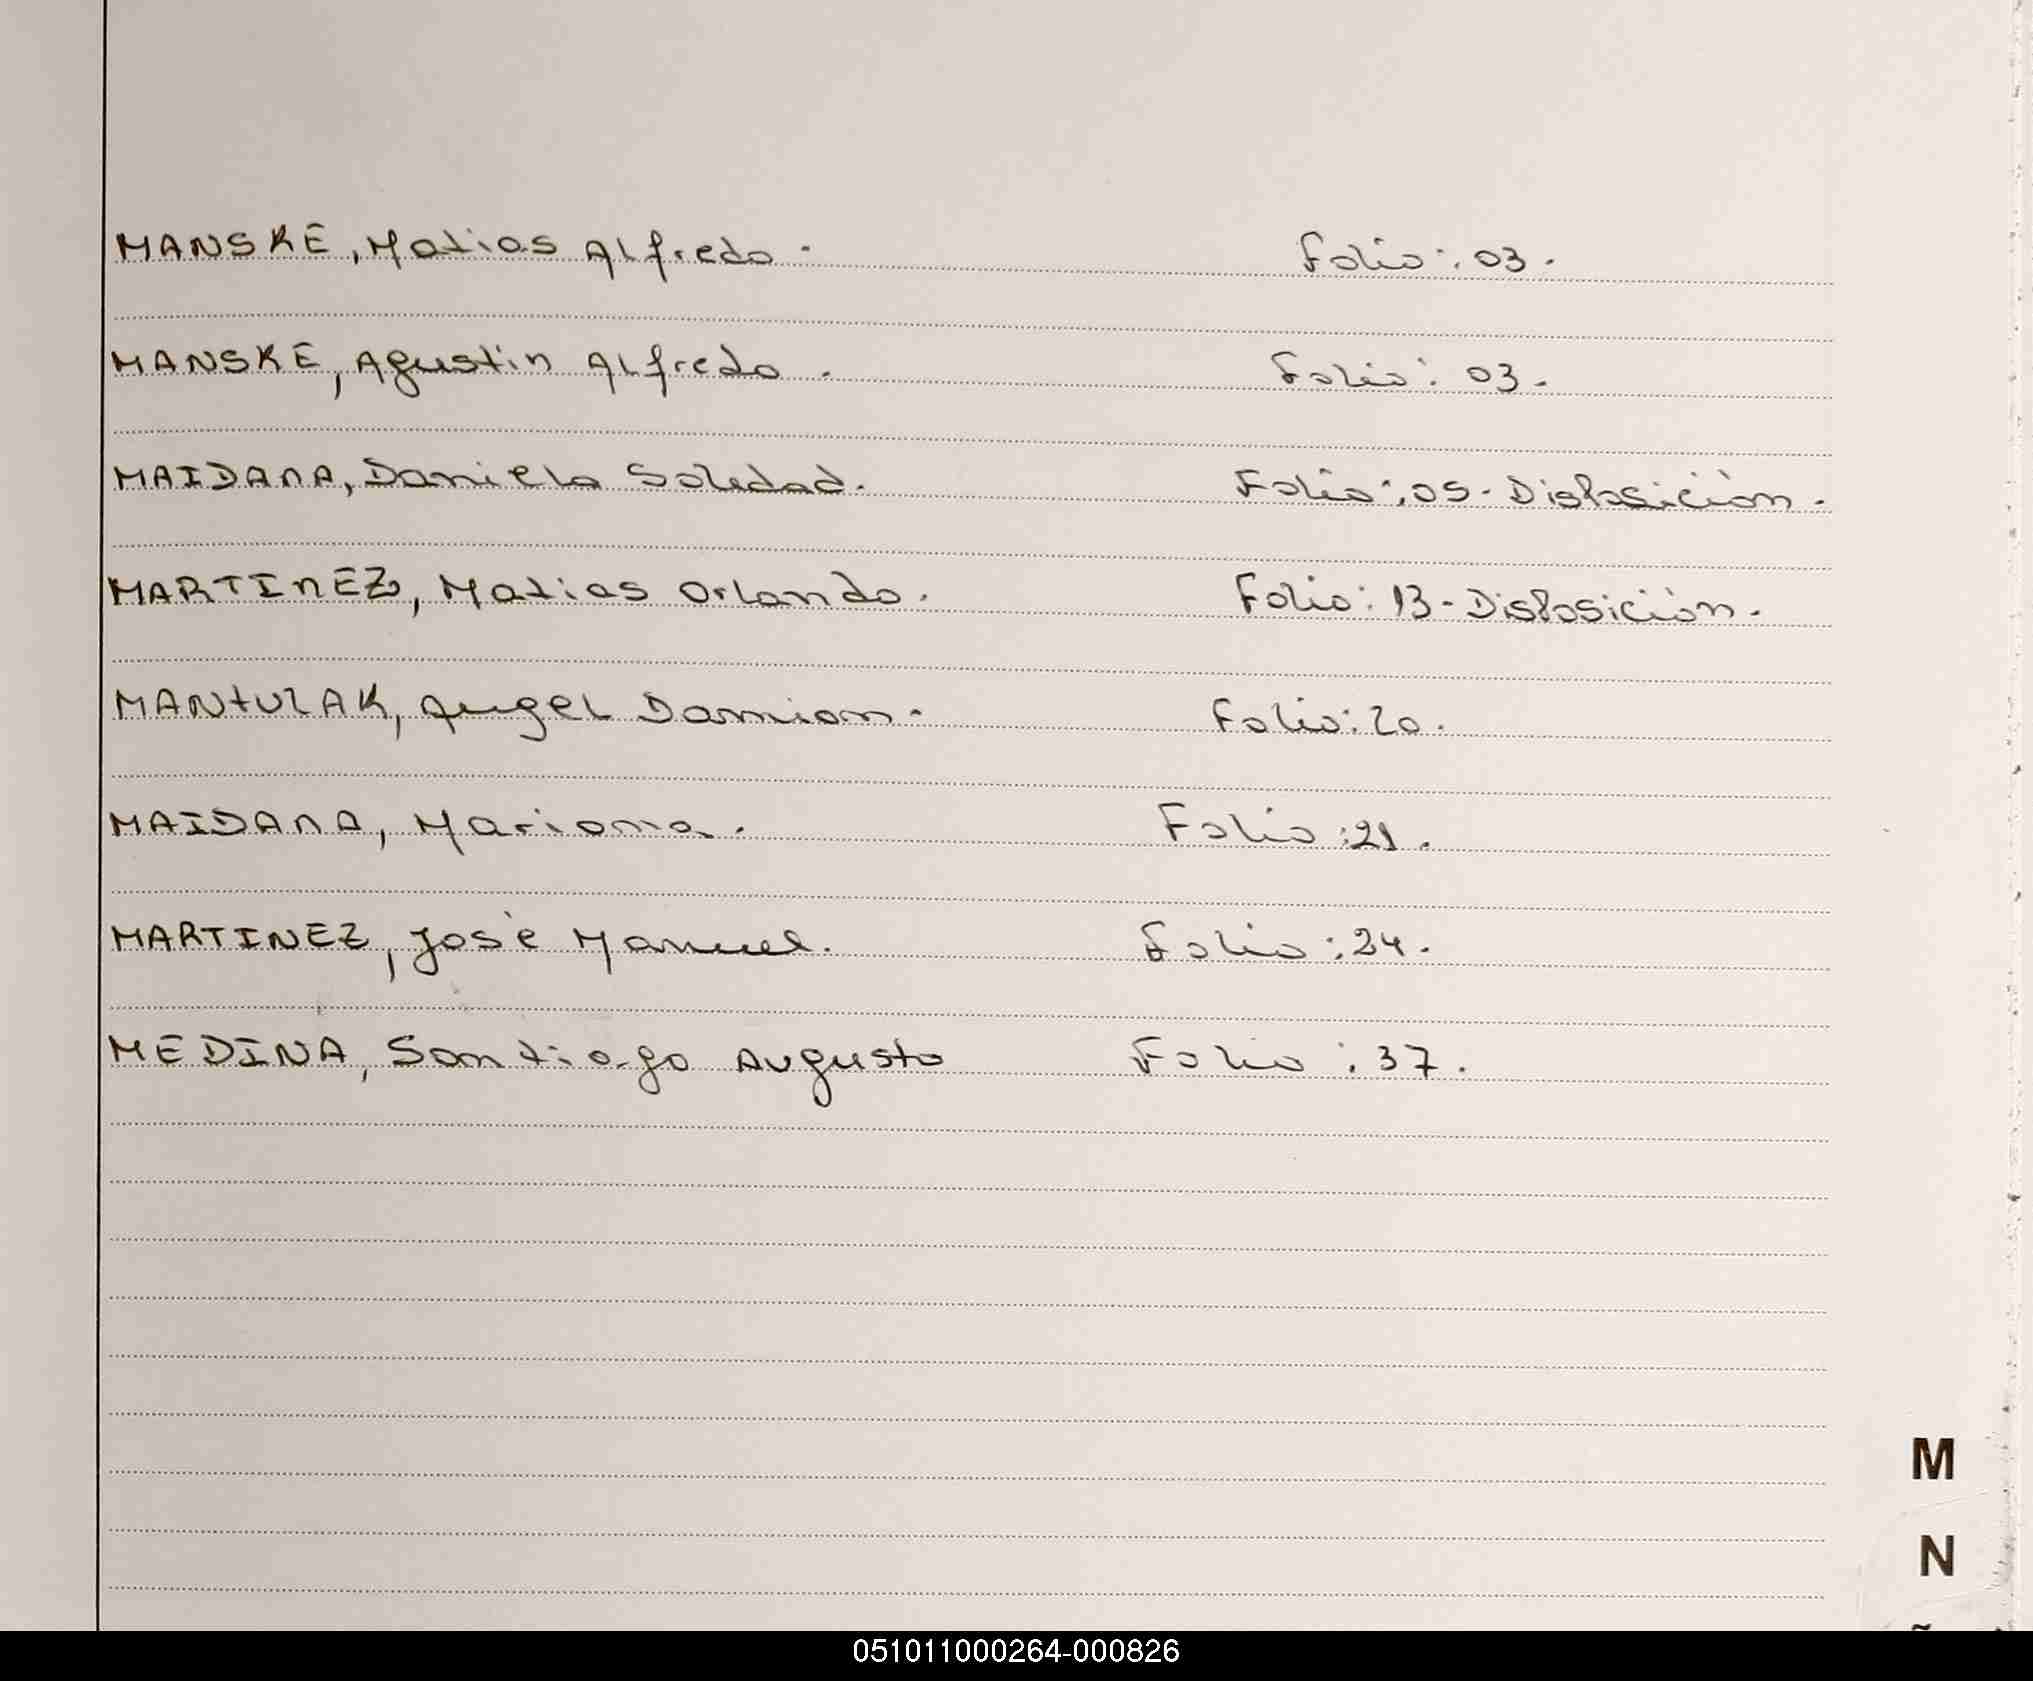 MANSKE, Matias Alfredo. Folio: 03.
MANSKE, Agustin Alfredo. Folio: 03.
MAIDANA, Daniela Soledad. Folio: 05. Disposición.
MARTINEZ, Matias Orlando. Folio: 13 - Disposición.
MANTULAK, Angel Damian. Folio: 20.
MAIDANA, Mariana. Folio: 21.
MARTINEZ, Josè Manuel. Folio: 24.
MEDINA, Santiago Augusto Folio: 37.
M
N
051011000264-000826